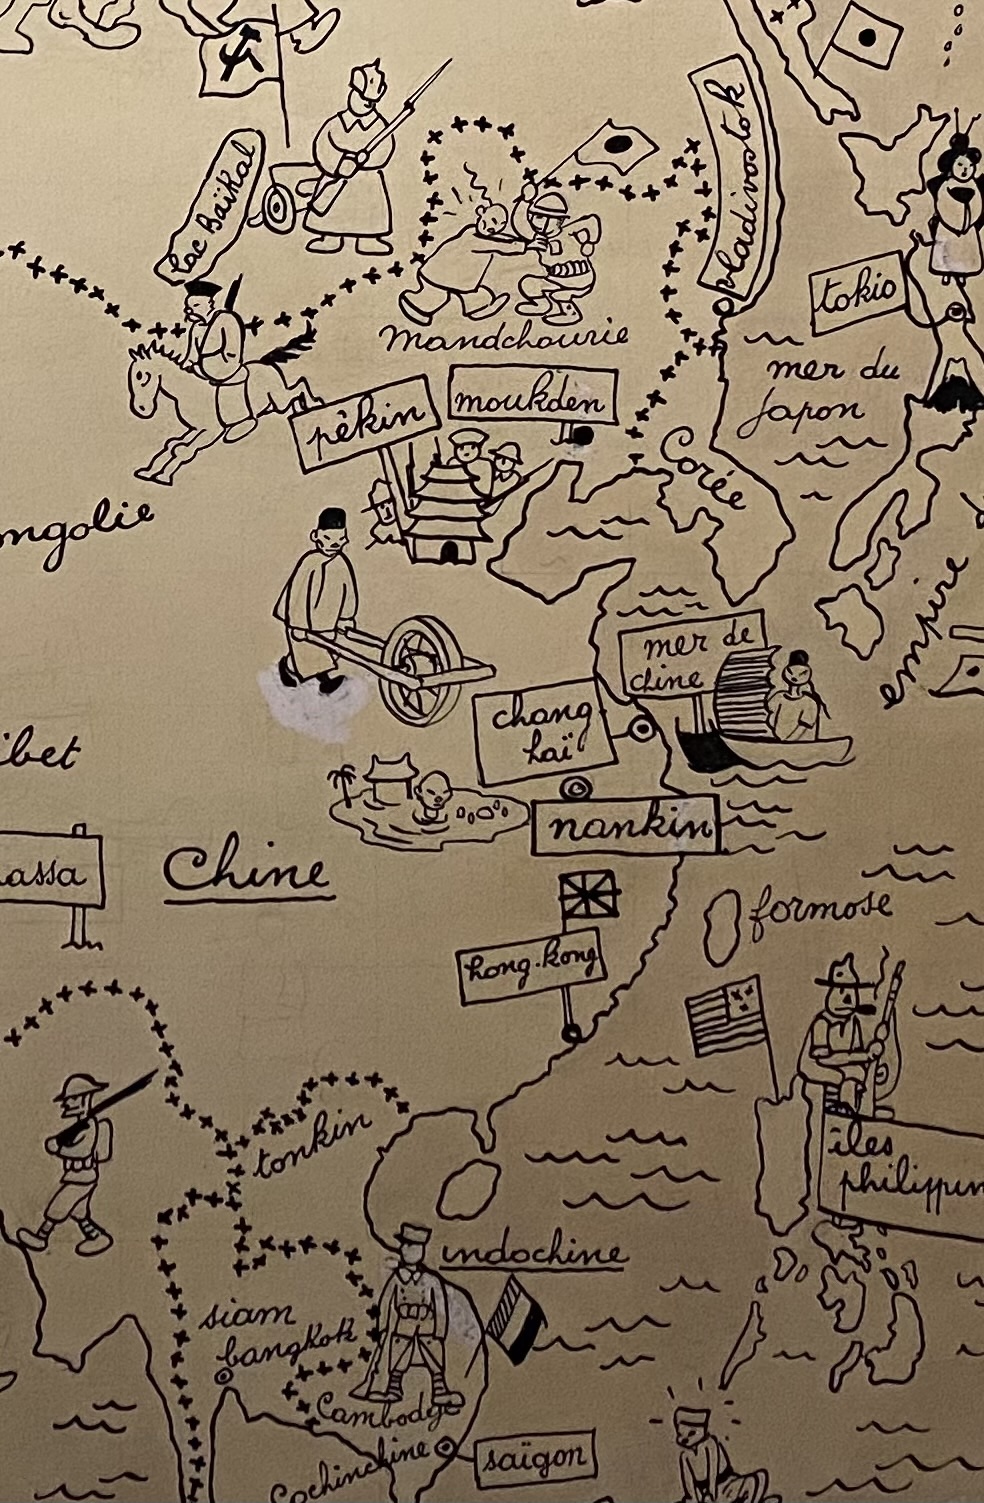 lac baïkal
vladivostok
tokio
mandchourie
mer du
japon
pékin
moukden
Corée
empire
mer de
chine
chang
haï
nankin
Chine
formose
hong-kong
tonkin
îles
indochine
siam
bangkok
Cambodge
Cochinchine
saïgon